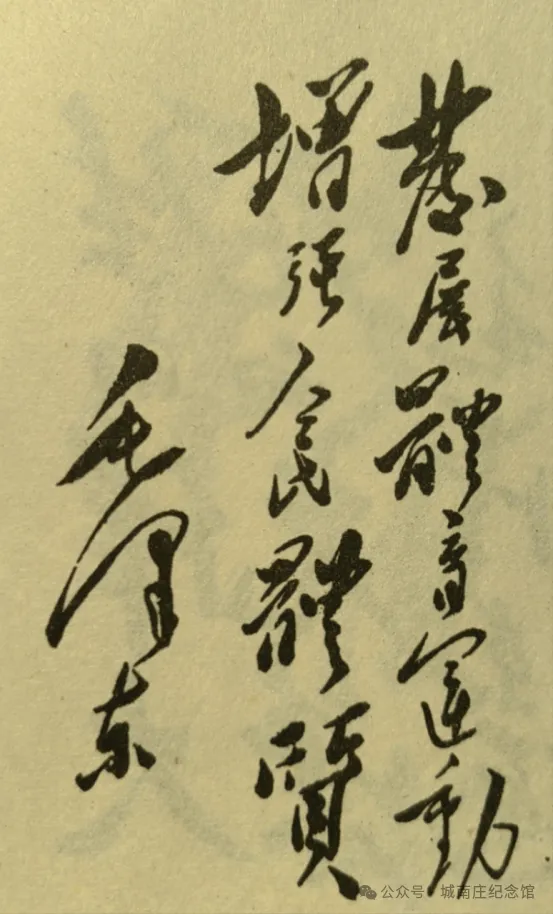 發展體育運動
增强人民體質
毛澤东
公众号·城南庄纪念馆